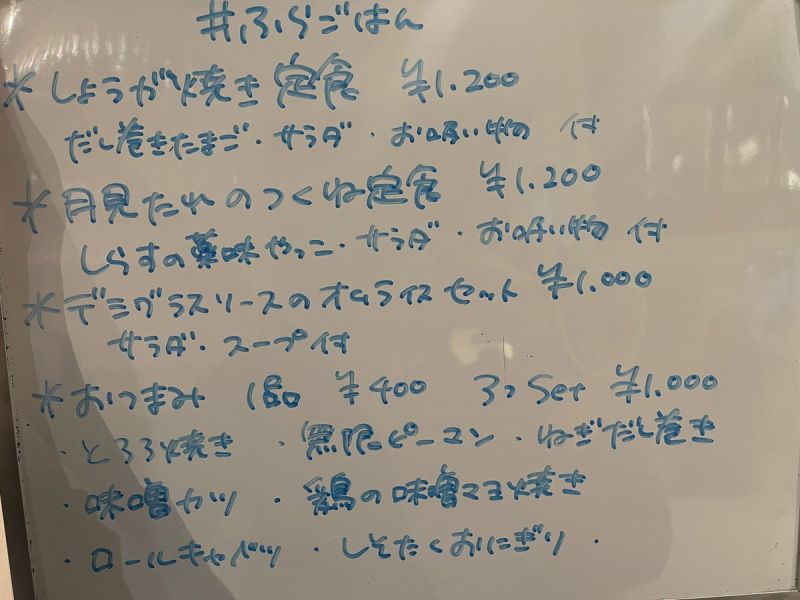 #ふらごはん
* しょうが焼き定食 ¥1.200
だし巻きたまご・サラダ・お吸い物 付
* 月見たれのつくね定食 ¥1.200
しらすの薬味やっこ・サラダ・お吸い物 付
* デミグラスソースのオムライスセット ¥1.000
サラダ・スープ付
* おつまみ 1品 ¥400 3つSet ¥1.000
・とろろ焼き ・無限ピーマン ・ねぎだし巻き
・味噌カツ ・鶏の味噌マヨ焼き
・ロールキャベツ ・しそたくおにぎり ・